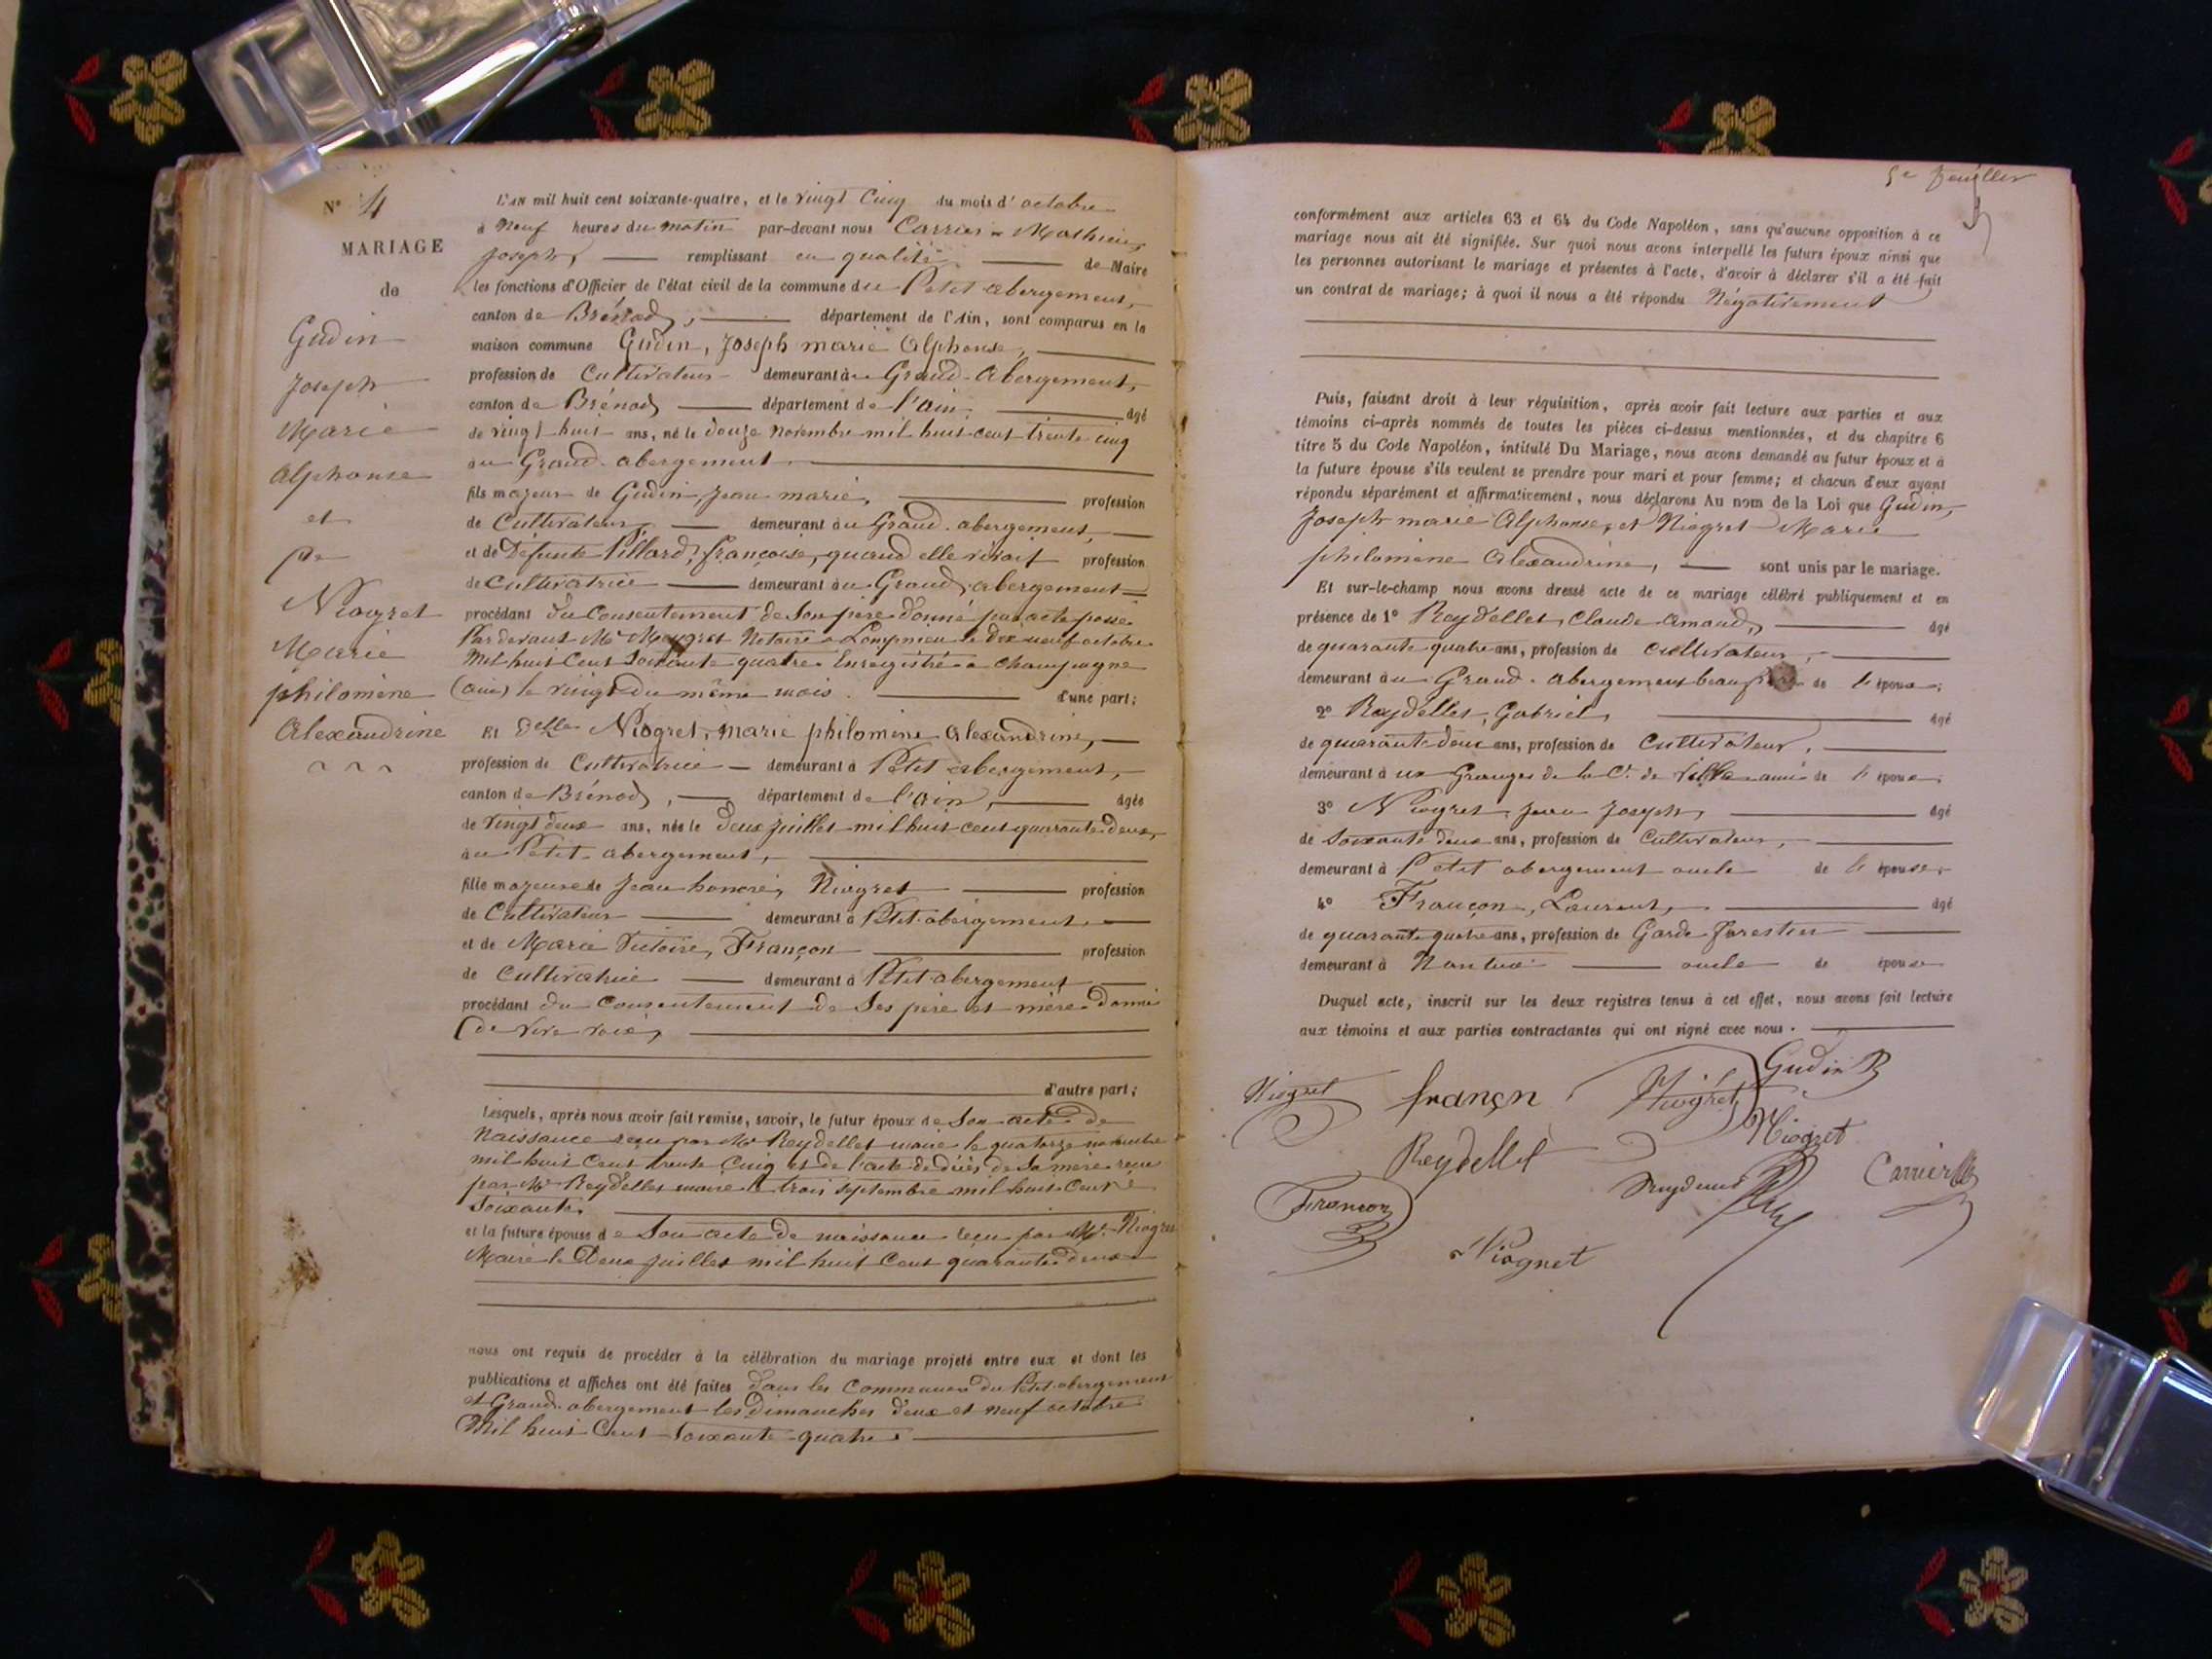 N° 4
MARIAGE
de
Gudin
Joseph
Marie
Alphonse
et
de
Niogret
Marie
philomène
Alexandrine
L'AN mil huit cent soixante-quatre, et le vingt Cinq du mois d'octobre
à Neuf heures du matin par-devant nous Carrier Mathieu
Joseph, remplissant en qualité de Maire
les fonctions d'Officier de l'état civil de la commune du Petit abergement,
canton de Brénod, département de l'Ain, sont comparus en la
maison commune Gudin, Joseph marie Alphonse,
profession de Cultivateur demeurant au Grand-Abergement,
canton de Brénod département de l'ain, âgé
de vingt huit ans, né le douze novembre mil huit cent trente cinq
au Grand-abergement
fils majeur de Gudin Jean marie, profession
de Cultivateur demeurant au Grand-abergement,
et de Défunte Pillard, françoise, quand elle vivait profession
de Cultivatrice demeurant au Grand abergement
procédant du Consentement de Son père donné par acte passé
Par devant Me Meygret Notaire à Lompnieu le dix neuf octobre
Mil huit Cent Soixante quatre Enregistré à Champagne
(ain) le vingt du même mois. d'une part;
Et delle Niogret, marie philomène Alexandrine,
profession de Cultivatrice demeurant à Petit abergement,
canton de Brénod, département de l'ain, âgée
de vingt deux ans, née le deux juillet mil huit cent quarante deux,
au Petit-abergement,
fille majeure de Jean honoré, Niogret profession
de Cultivateur demeurant à Petit abergement,
et de Marie Victoire, Françon profession
de Cultivatrice demeurant à Petit abergement
procédant du Consentement de Ses père et mère donné
(de Vive voix)
d'autre part;
Lesquels, après nous avoir fait remise, savoir, le futur époux de Son acte de
Naissance reçu par Mr Reydellet maire le quatorze novembre
mil huit Cent trente Cinq et de l'acte de décès de Sa mère reçu
par Mr Reydellet maire le trois septembre mil huit Cent
Soixante.
et la future épouse de Son acte de naissance reçu par Mr Niogret
Maire le Deux juillet mil huit Cent quarante deux
nous ont requis de procéder à la célébration du mariage projeté entre eux et dont les
publications et affiches ont été faites dans les Communes du Petit-abergement
et Grand-abergement les Dimanches deux et neuf octobre
Mil huit Cent Soixante-quatre
5e feuillet
conformément aux articles 63 et 64 du Code Napoléon, sans qu'aucune opposition à ce
mariage nous ait été signifiée. Sur quoi nous avons interpellé les futurs époux ainsi que
les personnes autorisant le mariage et présentes à l'acte, d'avoir à déclarer s'il a été fait
un contrat de mariage; à quoi il nous a été répondu Négativement
Puis, faisant droit à leur réquisition, après avoir fait lecture aux parties et aux
témoins ci-après nommés de toutes les pièces ci-dessus mentionnées, et du chapitre 6
titre 5 du Code Napoléon, intitulé Du Mariage, nous avons demandé au futur époux et à
la future épouse s'ils veulent se prendre pour mari et pour femme; et chacun d'eux ayant
répondu séparément et affirmativement, nous déclarons Au nom de la Loi que Gudin,
Joseph marie Alphonse, et Niogret Marie
philomène Alexandrine, sont unis par le mariage.
Et sur-le-champ nous avons dressé acte de ce mariage célébré publiquement et en
présence de 1° Reydellet, Claude Amand, âgé
de quarante quatre ans, profession de Cultivateur,
demeurant au Grand-abergement de l'époux,
2° Reydellet, Gabriel, âgé
de quarante deux ans, profession de Cultivateur,
demeurant à ux Granges de la Ce de ami de l'époux,
3° Niogret, Jean Joseph, âgé
de Soixante deux ans, profession de Cultivateur,
demeurant à Petit abergement oncle de l'épouse,
4° Françon, Laurent, âgé
de quarante quatre ans, profession de Garde forestier
demeurant à Nantua oncle de épouse
Duquel acte, inscrit sur les deux registres tenus à cet effet, nous avons fait lecture
aux témoins et aux parties contractantes qui ont signé avec nous.
Niogret françn Niogret Gudin
Niogret
Reydellet Carrier
Françon
Niogret